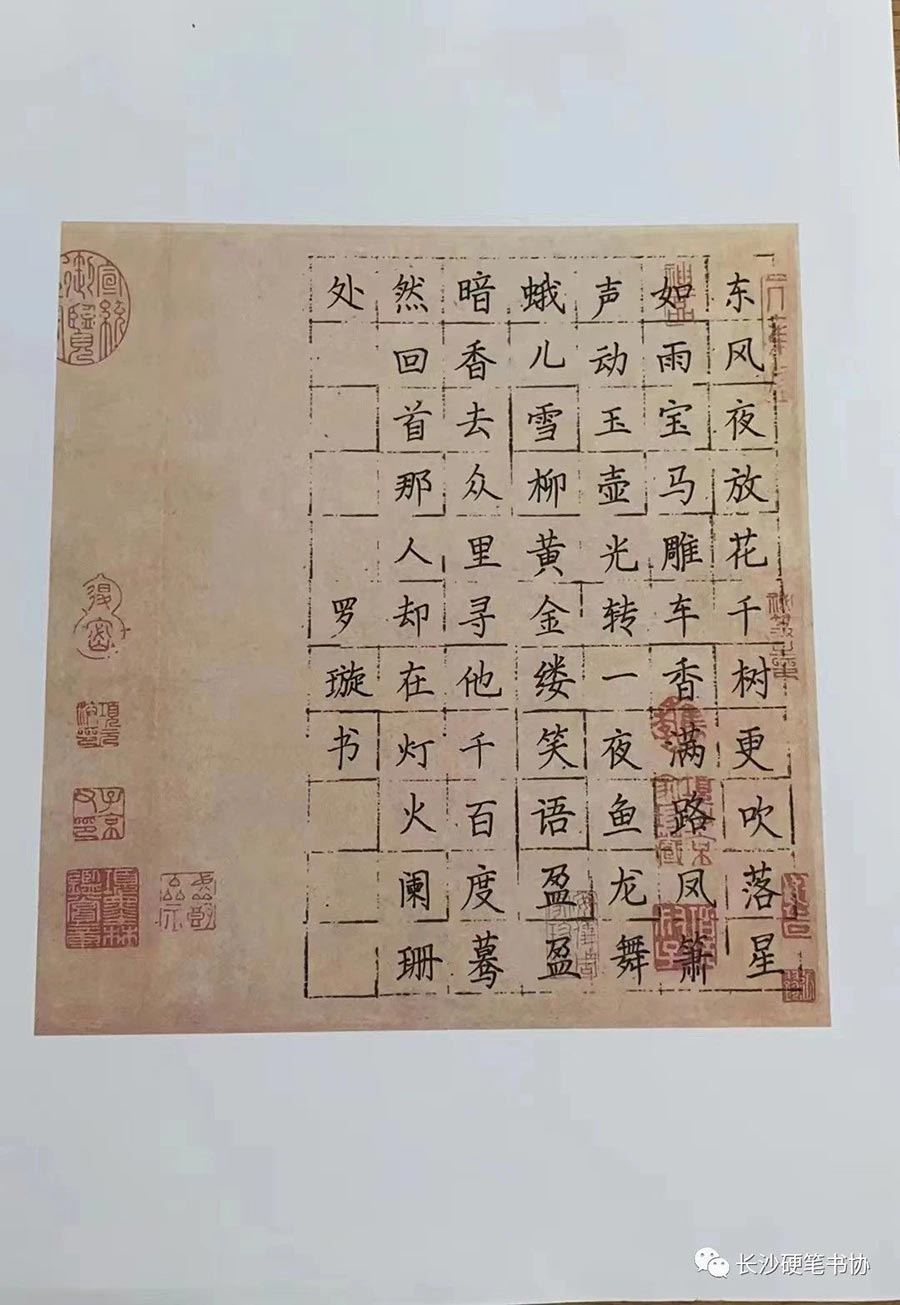 东风夜放花千树更吹落星
如雨宝马雕车香满路凤箫
声动玉壶光转一夜鱼龙舞
蛾儿雪柳黄金缕笑语盈盈
暗香去众里寻他千百度蓦
然回首那人却在灯火阑珊
处 罗璇书
神品
項元汴印
子京父印
項墨林鑑賞章
长沙硬笔书协